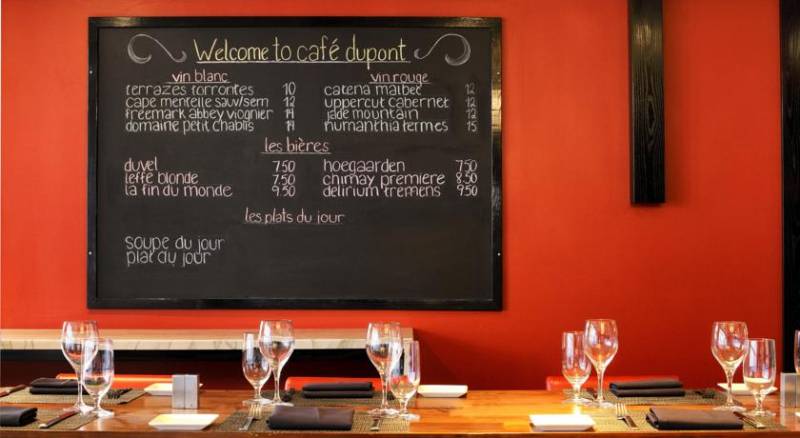 Welcome to café dupont
vin blanc
terrazes torrontes 10
cape mentelle sauv/sem 12
freemark abbey viognier 14
domaine petit chablis 14
vin rouge
catena malbec 12
uppercut cabernet 12
jade mountain 12
numanthia termes 15
les bières
duvel 7.50
leffe blonde 7.50
la fin du monde 9.50
hoegaarden 7.50
chimay premiere 8.50
delirium tremens 9.50
les plats du jour
soupe du jour
plat du jour